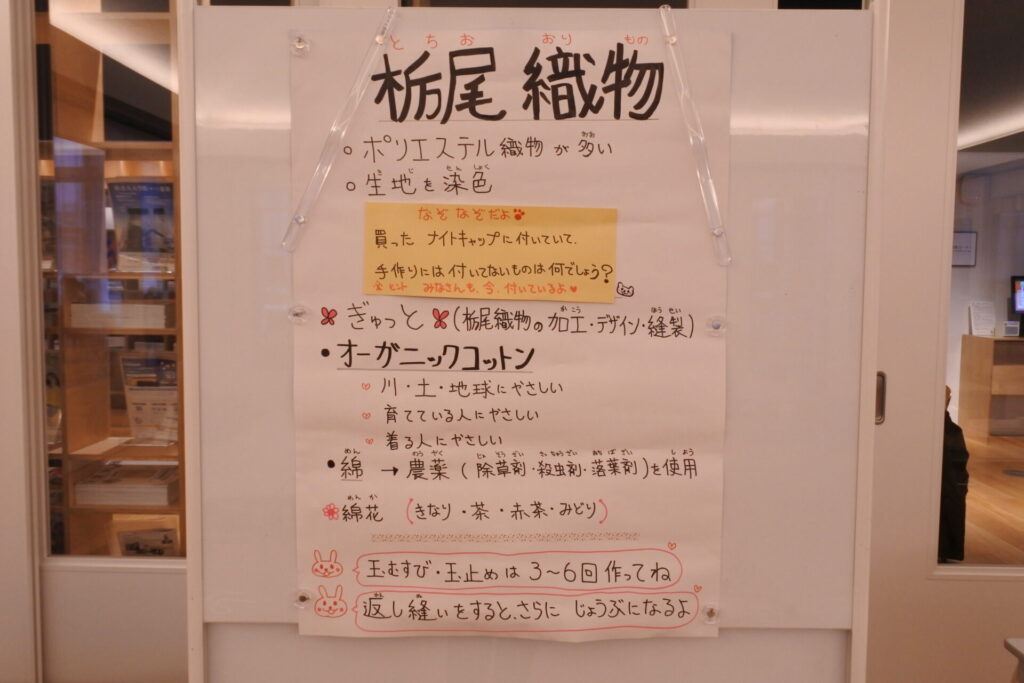 とちお おりもの
栃尾 織物
○ ポリエステル織物が多い
○ 生地を染色
なぞなぞだよ
買った ナイトキャップに付いていて、
手作りには付いてないものは何でしょう?
☆ヒント みなさんも、今、付いているよ♥
ぎゅっと (栃尾織物の加工・デザイン・縫製)
• オーガニックコットン
♡ 川・土・地球にやさしい
♡ 育てている人にやさしい
♡ 着る人にやさしい
• 綿 → 農薬 (除草剤・殺虫剤・落葉剤)を使用
綿花 (きなり・茶・赤茶・みどり)
玉むすび・玉止めは 3~6回 作ってね
返し縫いをすると、さらに じょうぶになるよ